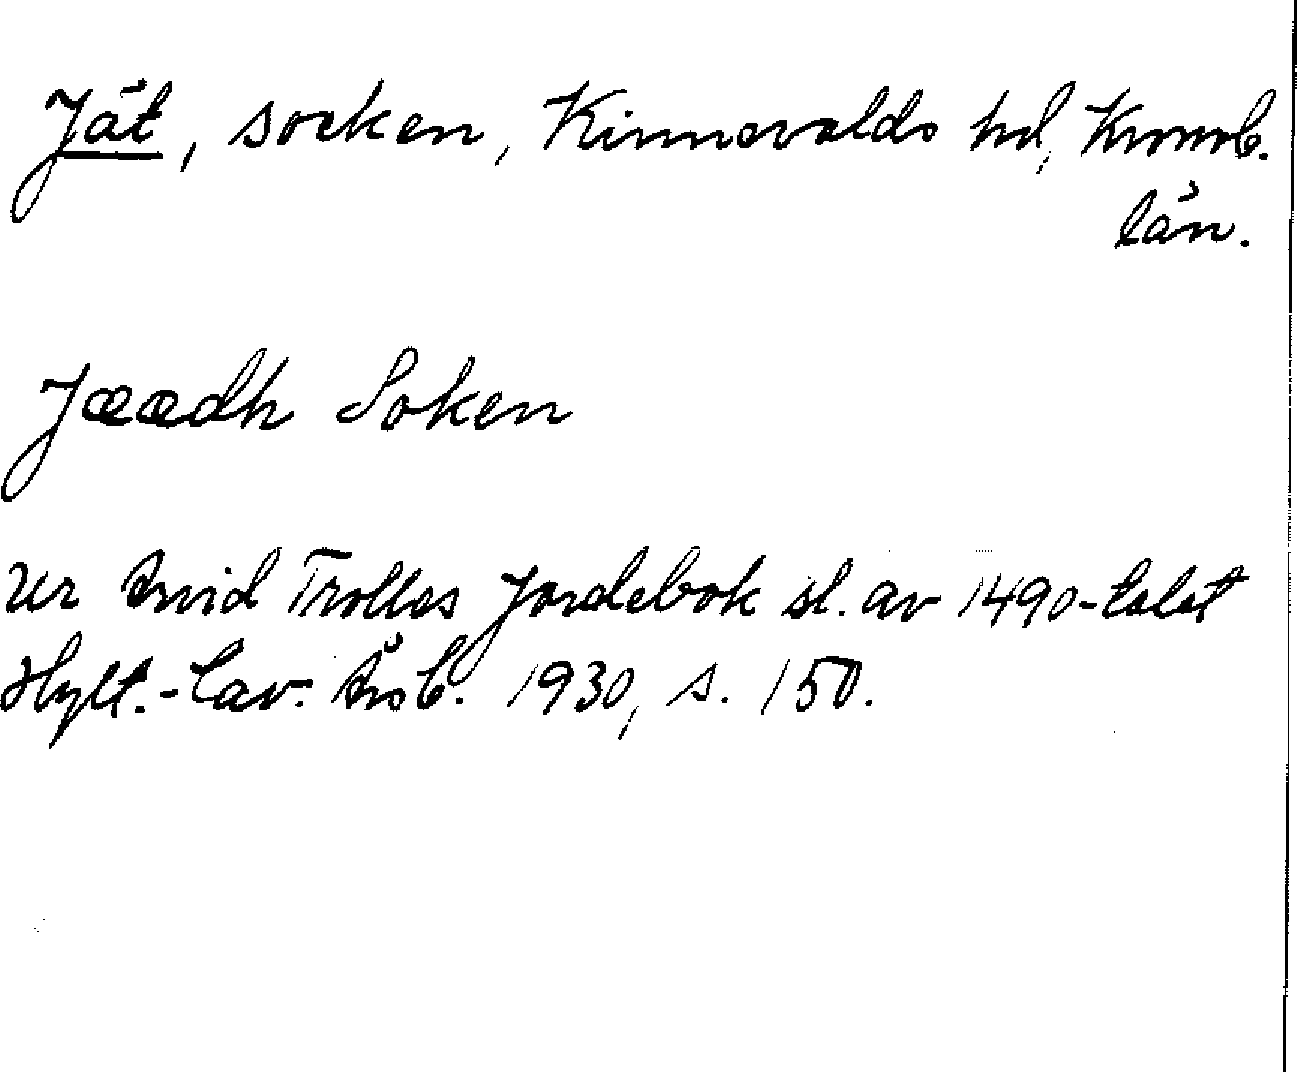 Jät, socken, Kinnevalds hd, Kronob.
län.
Jæædh Soken
Ur Arvid Trolles Jordebok sl. av 1490-talet
Hylt.-Cav. Årsb. 1930, s. 150.